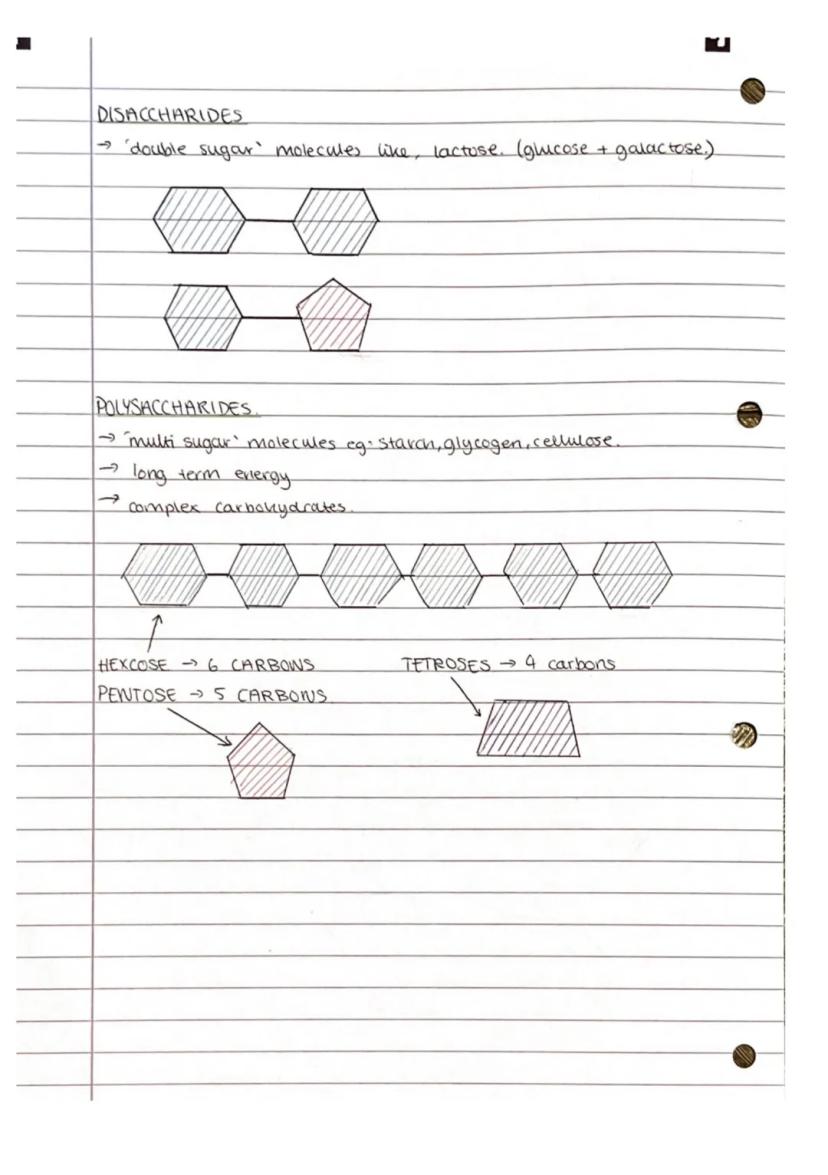 DISACCHARIDES
→ 'double sugar' molecules like, lactose. (glucose + galactose.)
POLYSACCHARIDES.
→ 'multi sugar' molecules eg. Starch, glycogen, cellulose.
→ long term energy
→ complex carbohydrates.
HEXCOSE → 6 CARBONS
TETROSES → 4 carbons
PENTOSE → 5 CARBONS